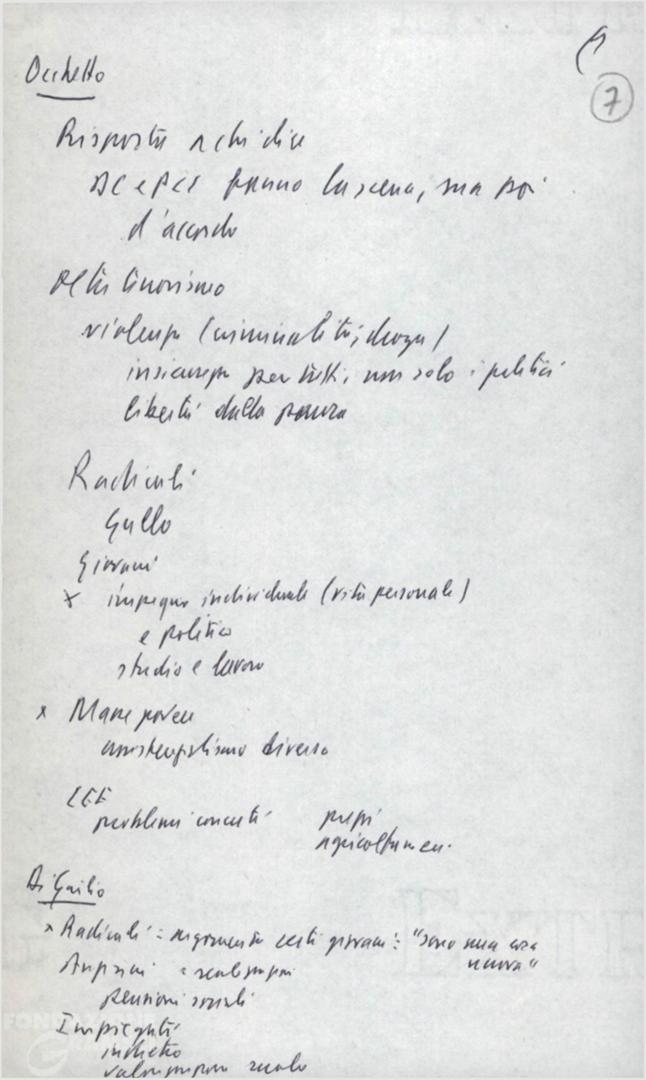 7
Occhetto
Risposta a chi dice
DC e PCI fanno la scena, ma poi
d'accordo
Oltre terrorismo
violenza (criminalità, droga)
insicurezza per tutti, non solo i politici
libertà dalla paura
Radicali
Gallo
Giovani
x impegno individuale (vita personale)
e politico
studio e lavoro
x Masse povere
assistenzialismo diverso
CEE
problemi concreti prezzi
agricoltura ecc.
Di Giulio
x Radicali = argomento certi giovani: "sono una cosa
nuova"
Anziani =
pensioni sociali
Impiegati
indietro